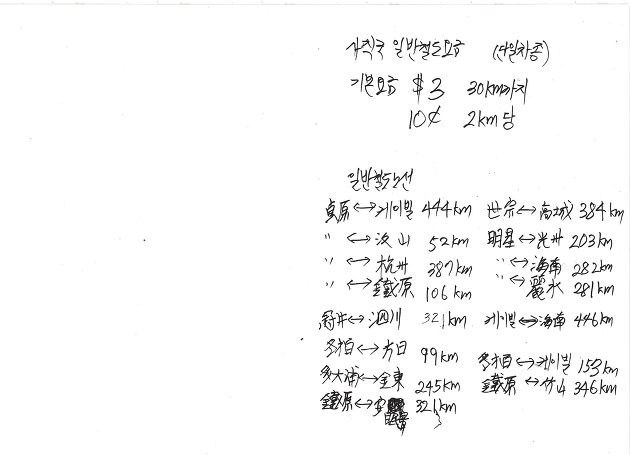 사직국 일반철도요금 (단일차종)
기본요금 $3 30km까지
10¢ 2km당
일반철도노선
貞原↔케이빌 444km
〃 ↔汶山 52km
〃 ↔杭州 387km
〃 ↔鐵原 106km
↔泗川 321km
冬柏↔方日 99km
多大浦↔金東 245km
鐵原↔安 321km
世宗↔高城 384km
明星↔光州 203km
〃↔海南 282km
〃↔麗水 281km
케이빌↔海南 446km
冬柏↔케이빌 153km
鐵原↔竹山 346km